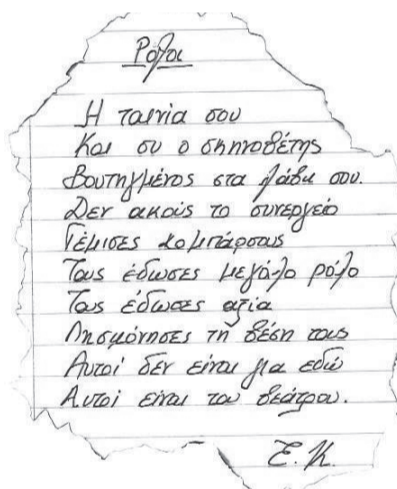 Ρόλοι
Η ταινία σου
Και συ ο σκηνοθέτης
Βουτηγμένος στα λάθη σου.
Δεν ακούς το συνεργείο
Γέμισες κομπάρσους
Τους έδωσες μεγάλο ρόλο
Τους έδωσες αξία
Λησμόνησες τη θέση τους
Αυτοί δεν είναι για εδώ
Αυτοί είναι του θεάτρου.
Ε.Κ.